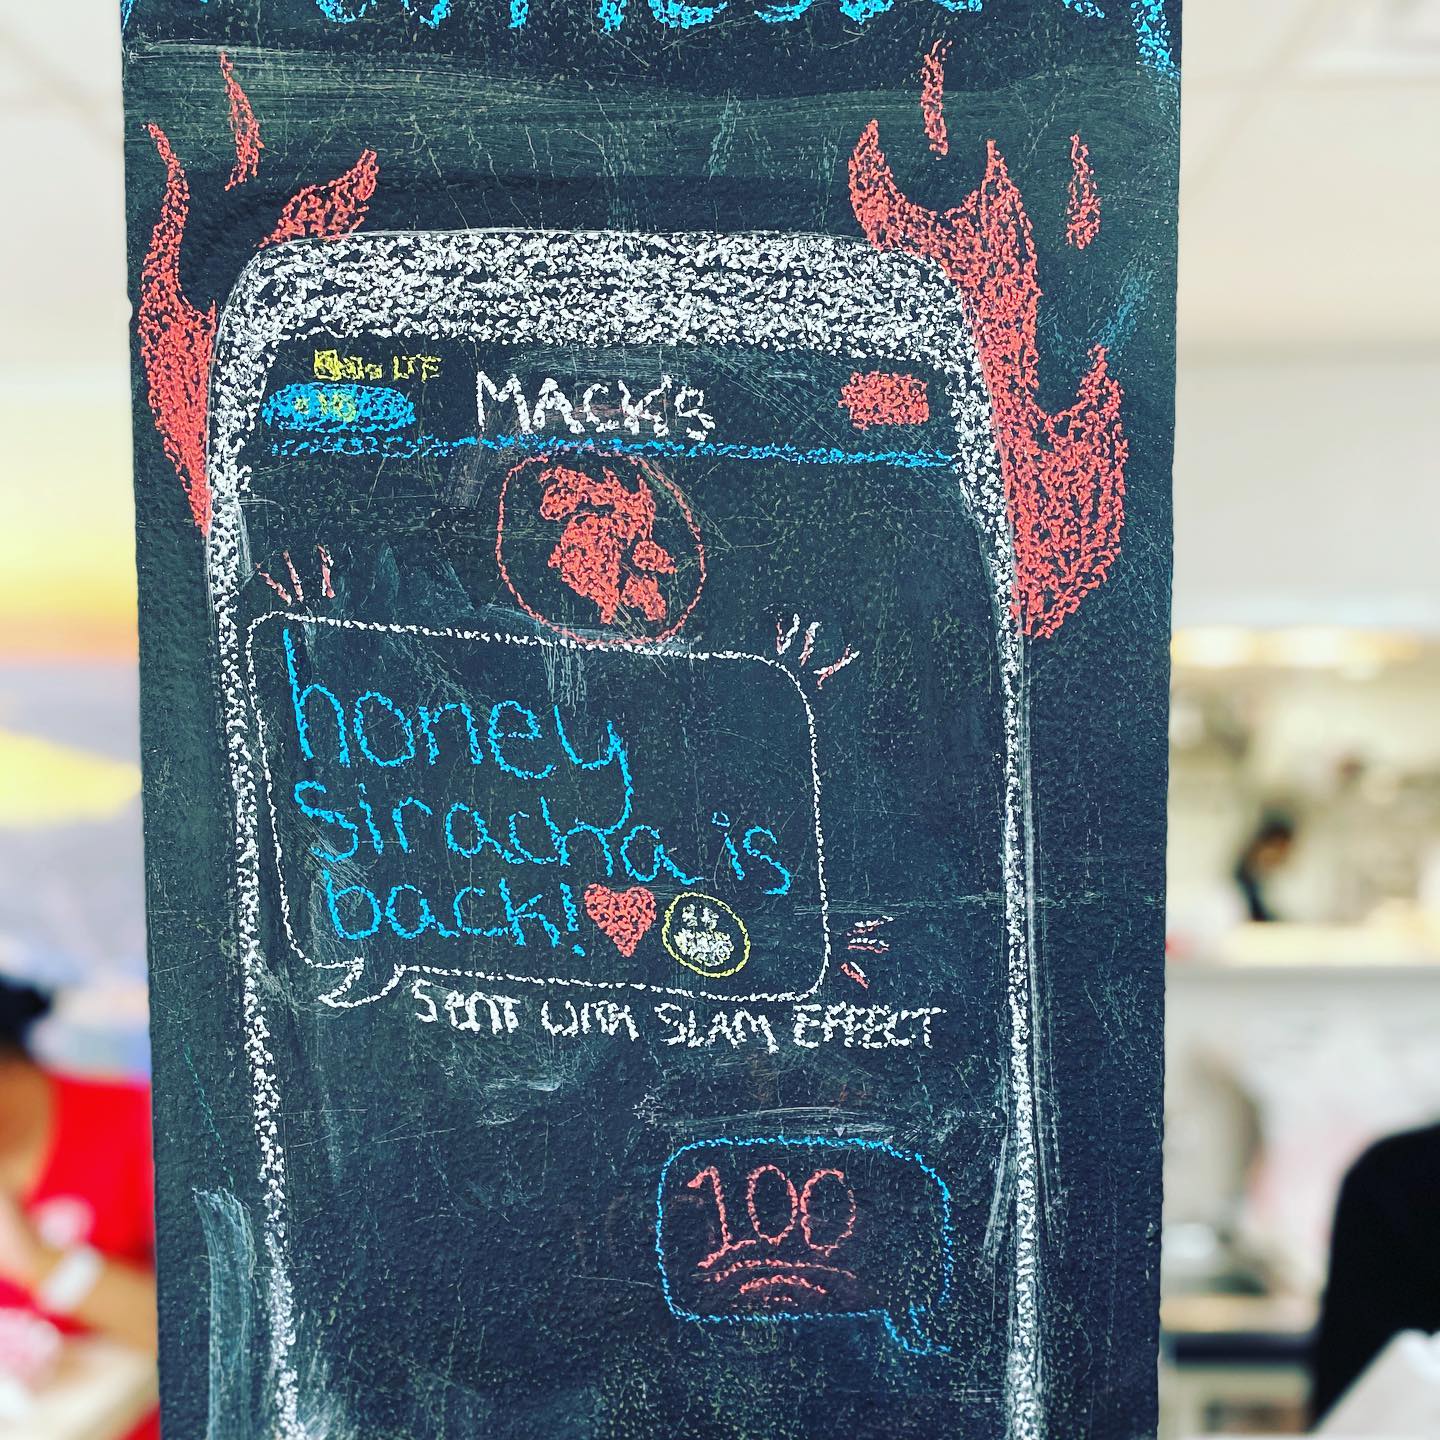 LTE
MACK'S
honey
siracha is
back!
SENT WITH SLAM EFFECT
100